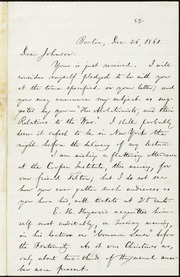 Boston, Dec. 26, 1861.
Dear Johnson:
Yours is just received. I will
consider myself pledged to be with you
at the time specified in your letter, and
you may announce my subject as sug-
gested by you — "The Abolitionists, and their
Relations to the War." I shall probably
deem it expedient to be in New York the
night before the delivery of my lecture.
I am wishing a flattering
at the Cooper Institute, this evening, for
our friend Tilton; but I do not see
how you can gather such audiences as
you have his, will dictate at
E. H. Heywood acquitted him-
self most creditably, on Sunday morning,
in his lecture on "Common Sense" before
the Fraternity. As it was Christmas
only about two thirds of the usual num-
ber were present.